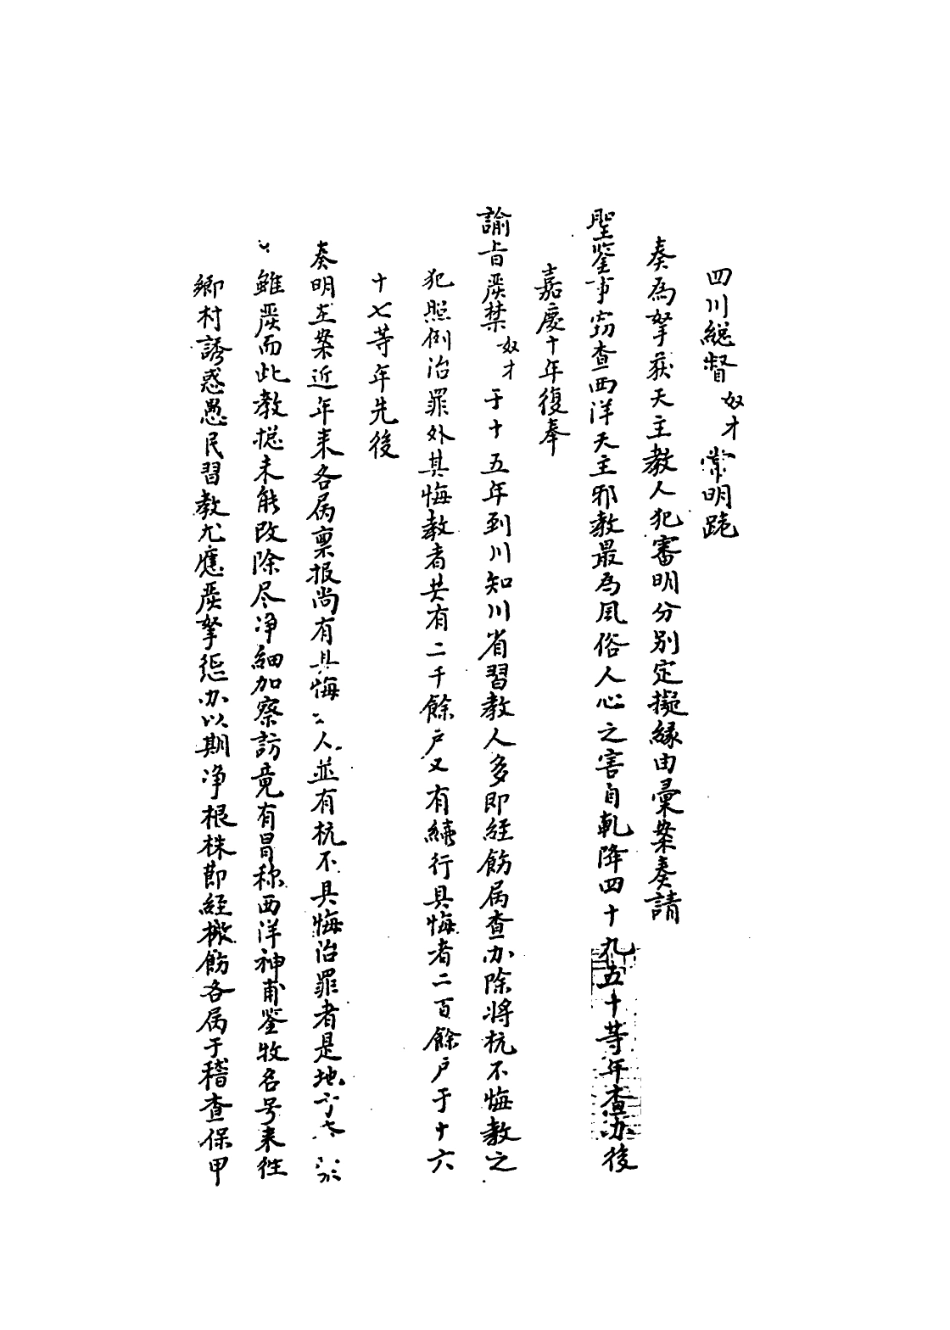 四川總督奴才常明跪
奏為拏获天主教人犯審明分别定擬緣由彙案奏請
聖鉴事窃查西洋天主邪教最為風俗人心之害自乹隆四十九五十等年查办後
嘉慶十年復奉
諭旨严禁奴才于十五年到川知川省習教人多即經飭属查办除将抗不悔教之
犯照例治罪外其悔教者共有二千餘户又有續行具悔者二百餘户于十六
十七等年先後
奏明在案近年来各属禀报尚有具悔之人並有抗不具悔治罪者是地方
雖严而此教捴未能改除尽净細加察訪竟有冒称西洋神甫鉴牧名号来往
鄉村誘惑愚民習教尤應严拏惩办以期净根株即經檄飭各属于稽查保甲